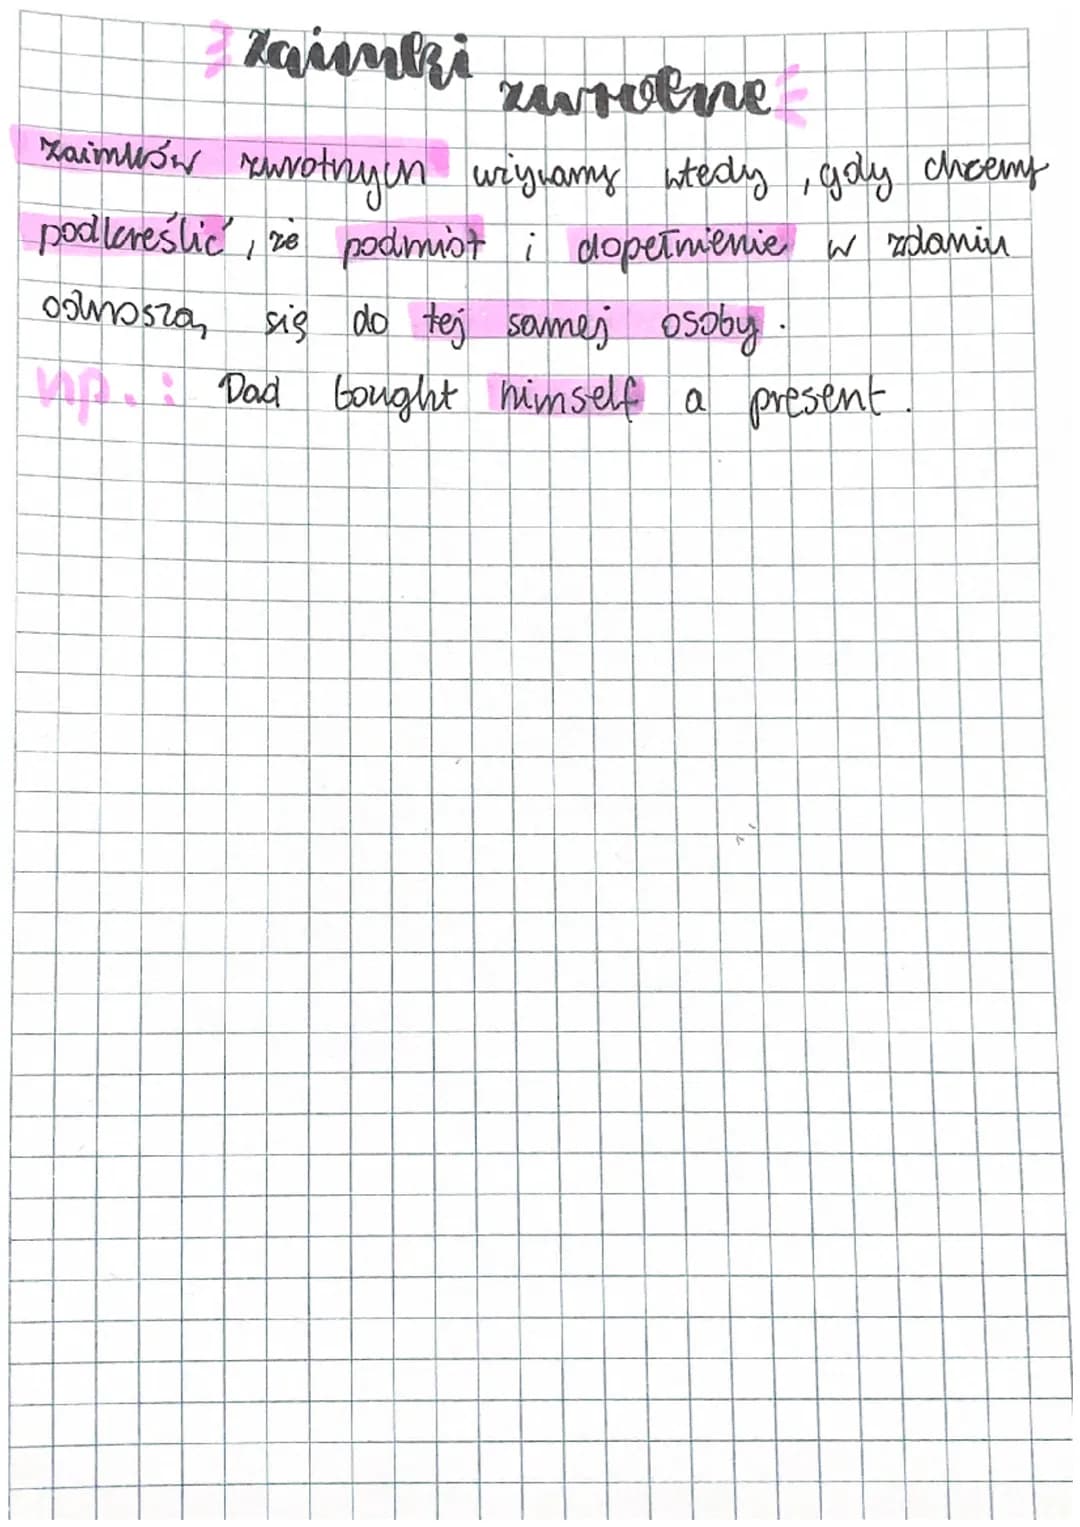 zaimki zwrotne
zaimków zwrotnych używamy wtedy, gdy chcemy
podkreślić, że podmiot i dopełnienie w zdaniu
odnoszą się do tej samej osoby.
np.: Dad bought himself a present.